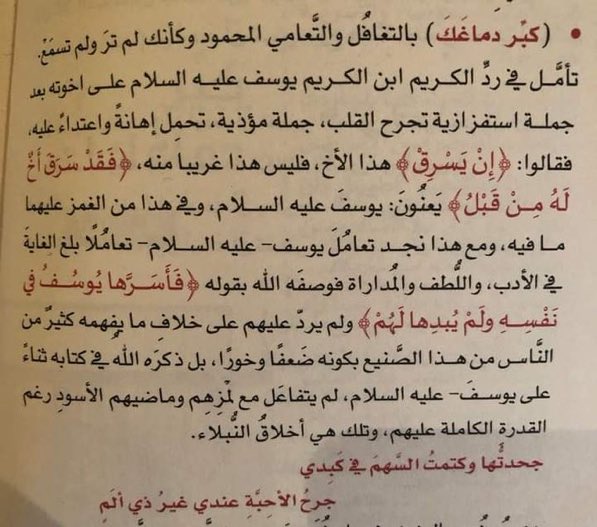 • (كبِّر دماغَكَ) بالتغافُل والتَّعامي المحمود وكأنك لم ترَ ولم تسمَعْ.
تأمَّل في ردِّ الكريم ابن الكريم يوسف عليه السلام على اخوته بعد
جملة استفزازية تجرح القلب، جملة مؤذية، تحمِل إهانةً واعتداءً عليه،
فقالوا: ﴿إِنْ يَسْرِقْ﴾ هذا الأخ، فليس هذا غريبا منه، ﴿فَقَدْ سَرَقَ أَخٌ
لَهُ مِنْ قَبْلُ﴾ يَعنُونَ: يوسفَ عليه السلام، وفي هذا من الغمز عليهما
ما فيه، ومع هذا نجد تعامُلَ يوسف- عليه السلام- تعاملًا بلغ الغايةَ
في الأدب، واللُّطف والمُداراة فوصفَه الله بقوله ﴿فَأَسَرَّها يُوسُفُ في
نَفْسِهِ ولَمْ يُبدِها لَهُمْ﴾ ولم يردّ عليهم على خلافِ ما يفهمه كثيرٌ من
النَّاس من هذا الصَّنيع بكونه ضَعفًا وخورًا، بل ذكرَه اللهُ في كتابه ثناءً
على يوسفَ- عليه السلام، لم يتفاعَل مع لمْزِهِم وماضيهم الأسودِ رغم
القدرة الكاملة عليهم، وتلك هي أخلاقُ النُّبلاء.
جحدتُها وكتمتُ السَّهمَ في كَبِدي
جرحُ الأحِبَّةِ عندي غيرُ ذي ألَمِ